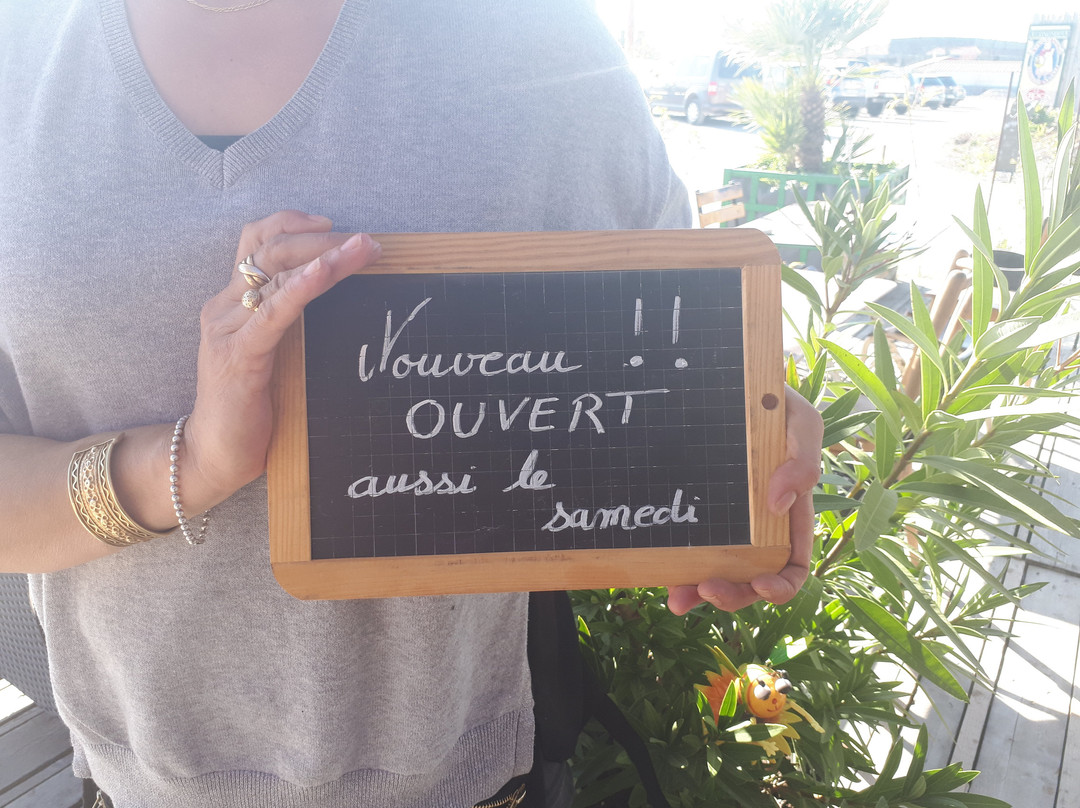 Nouveau !!
OUVERT
aussi le
samedi